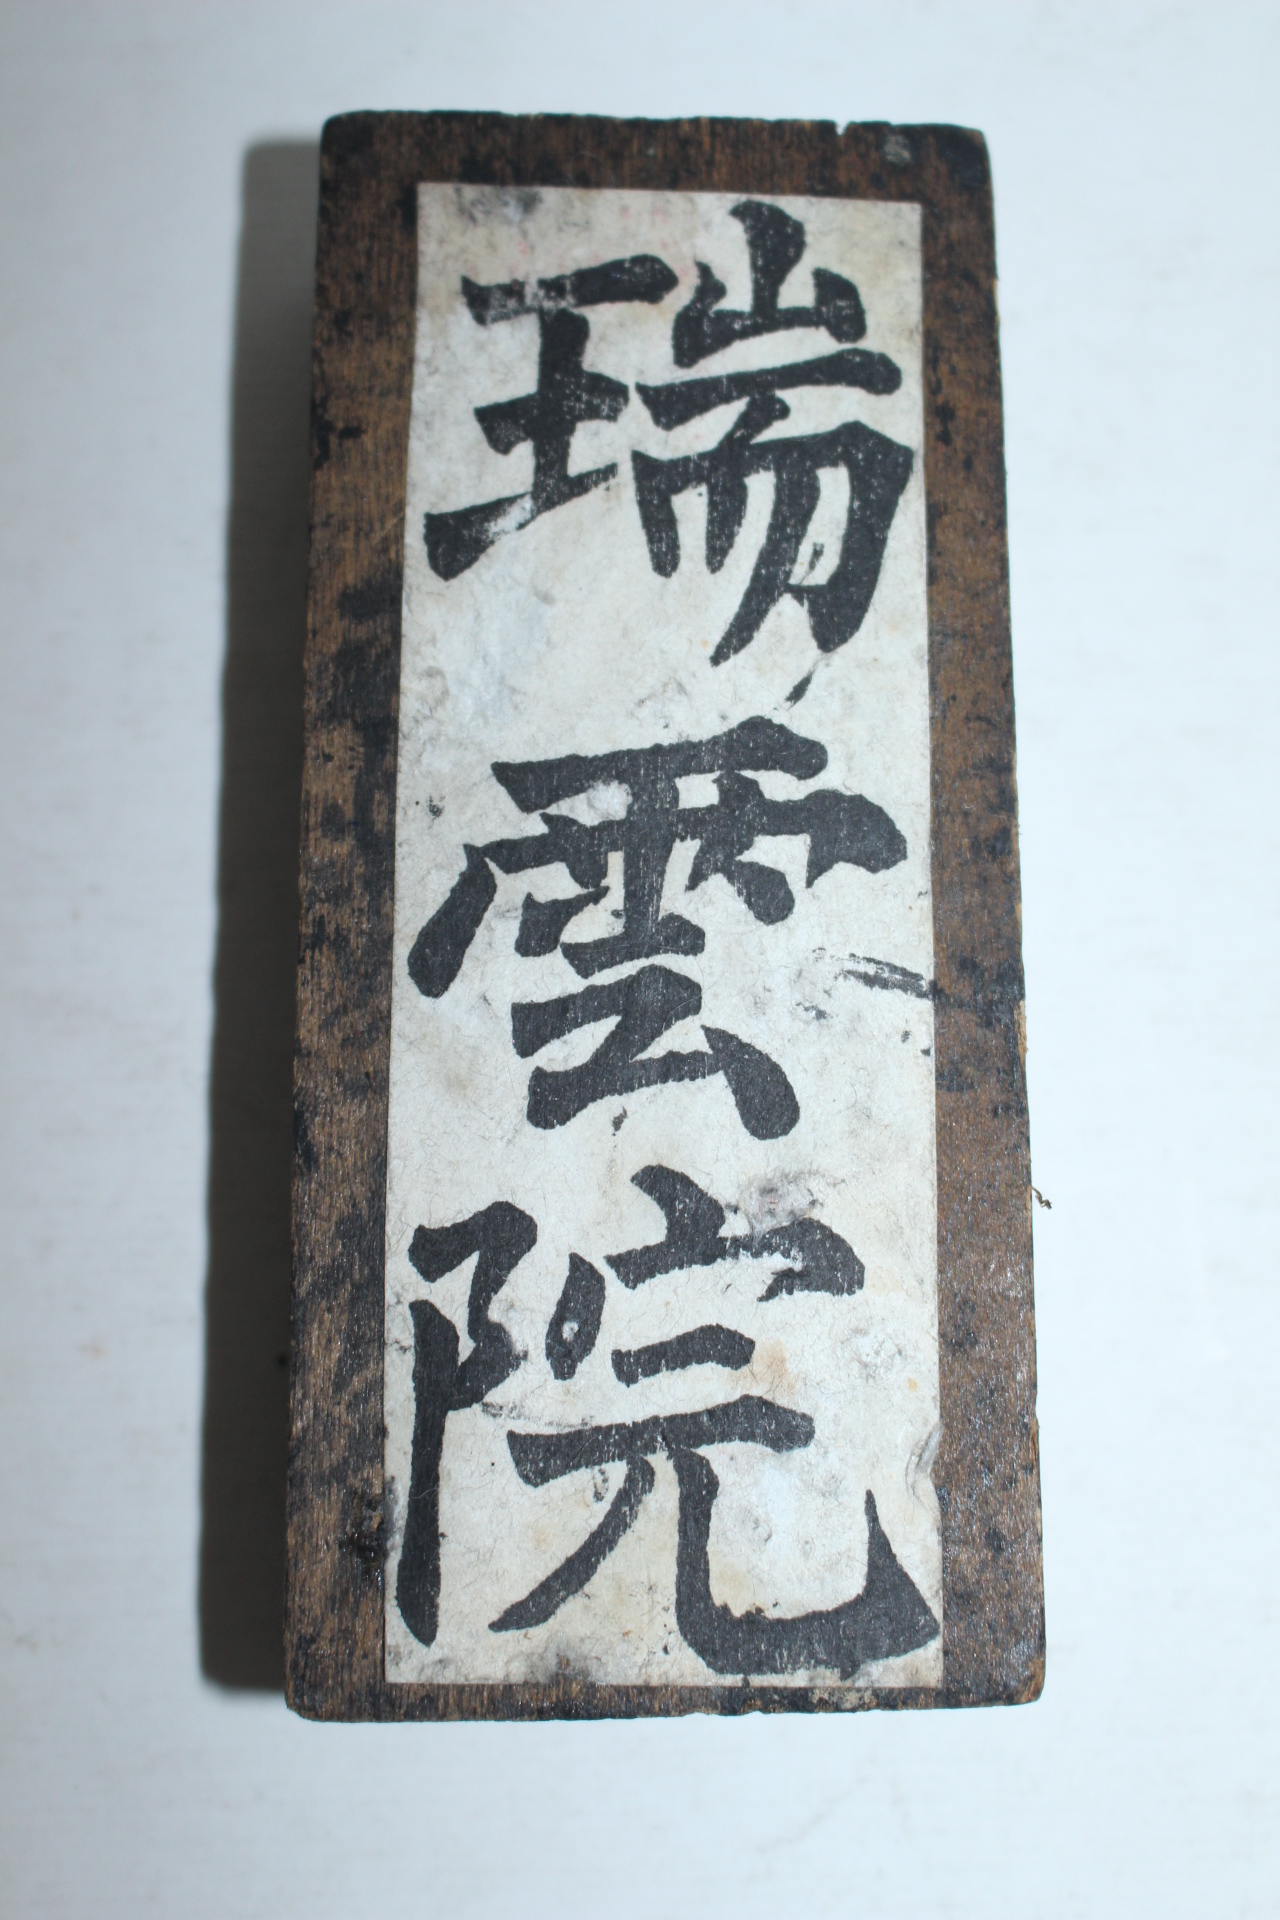 瑞雲院